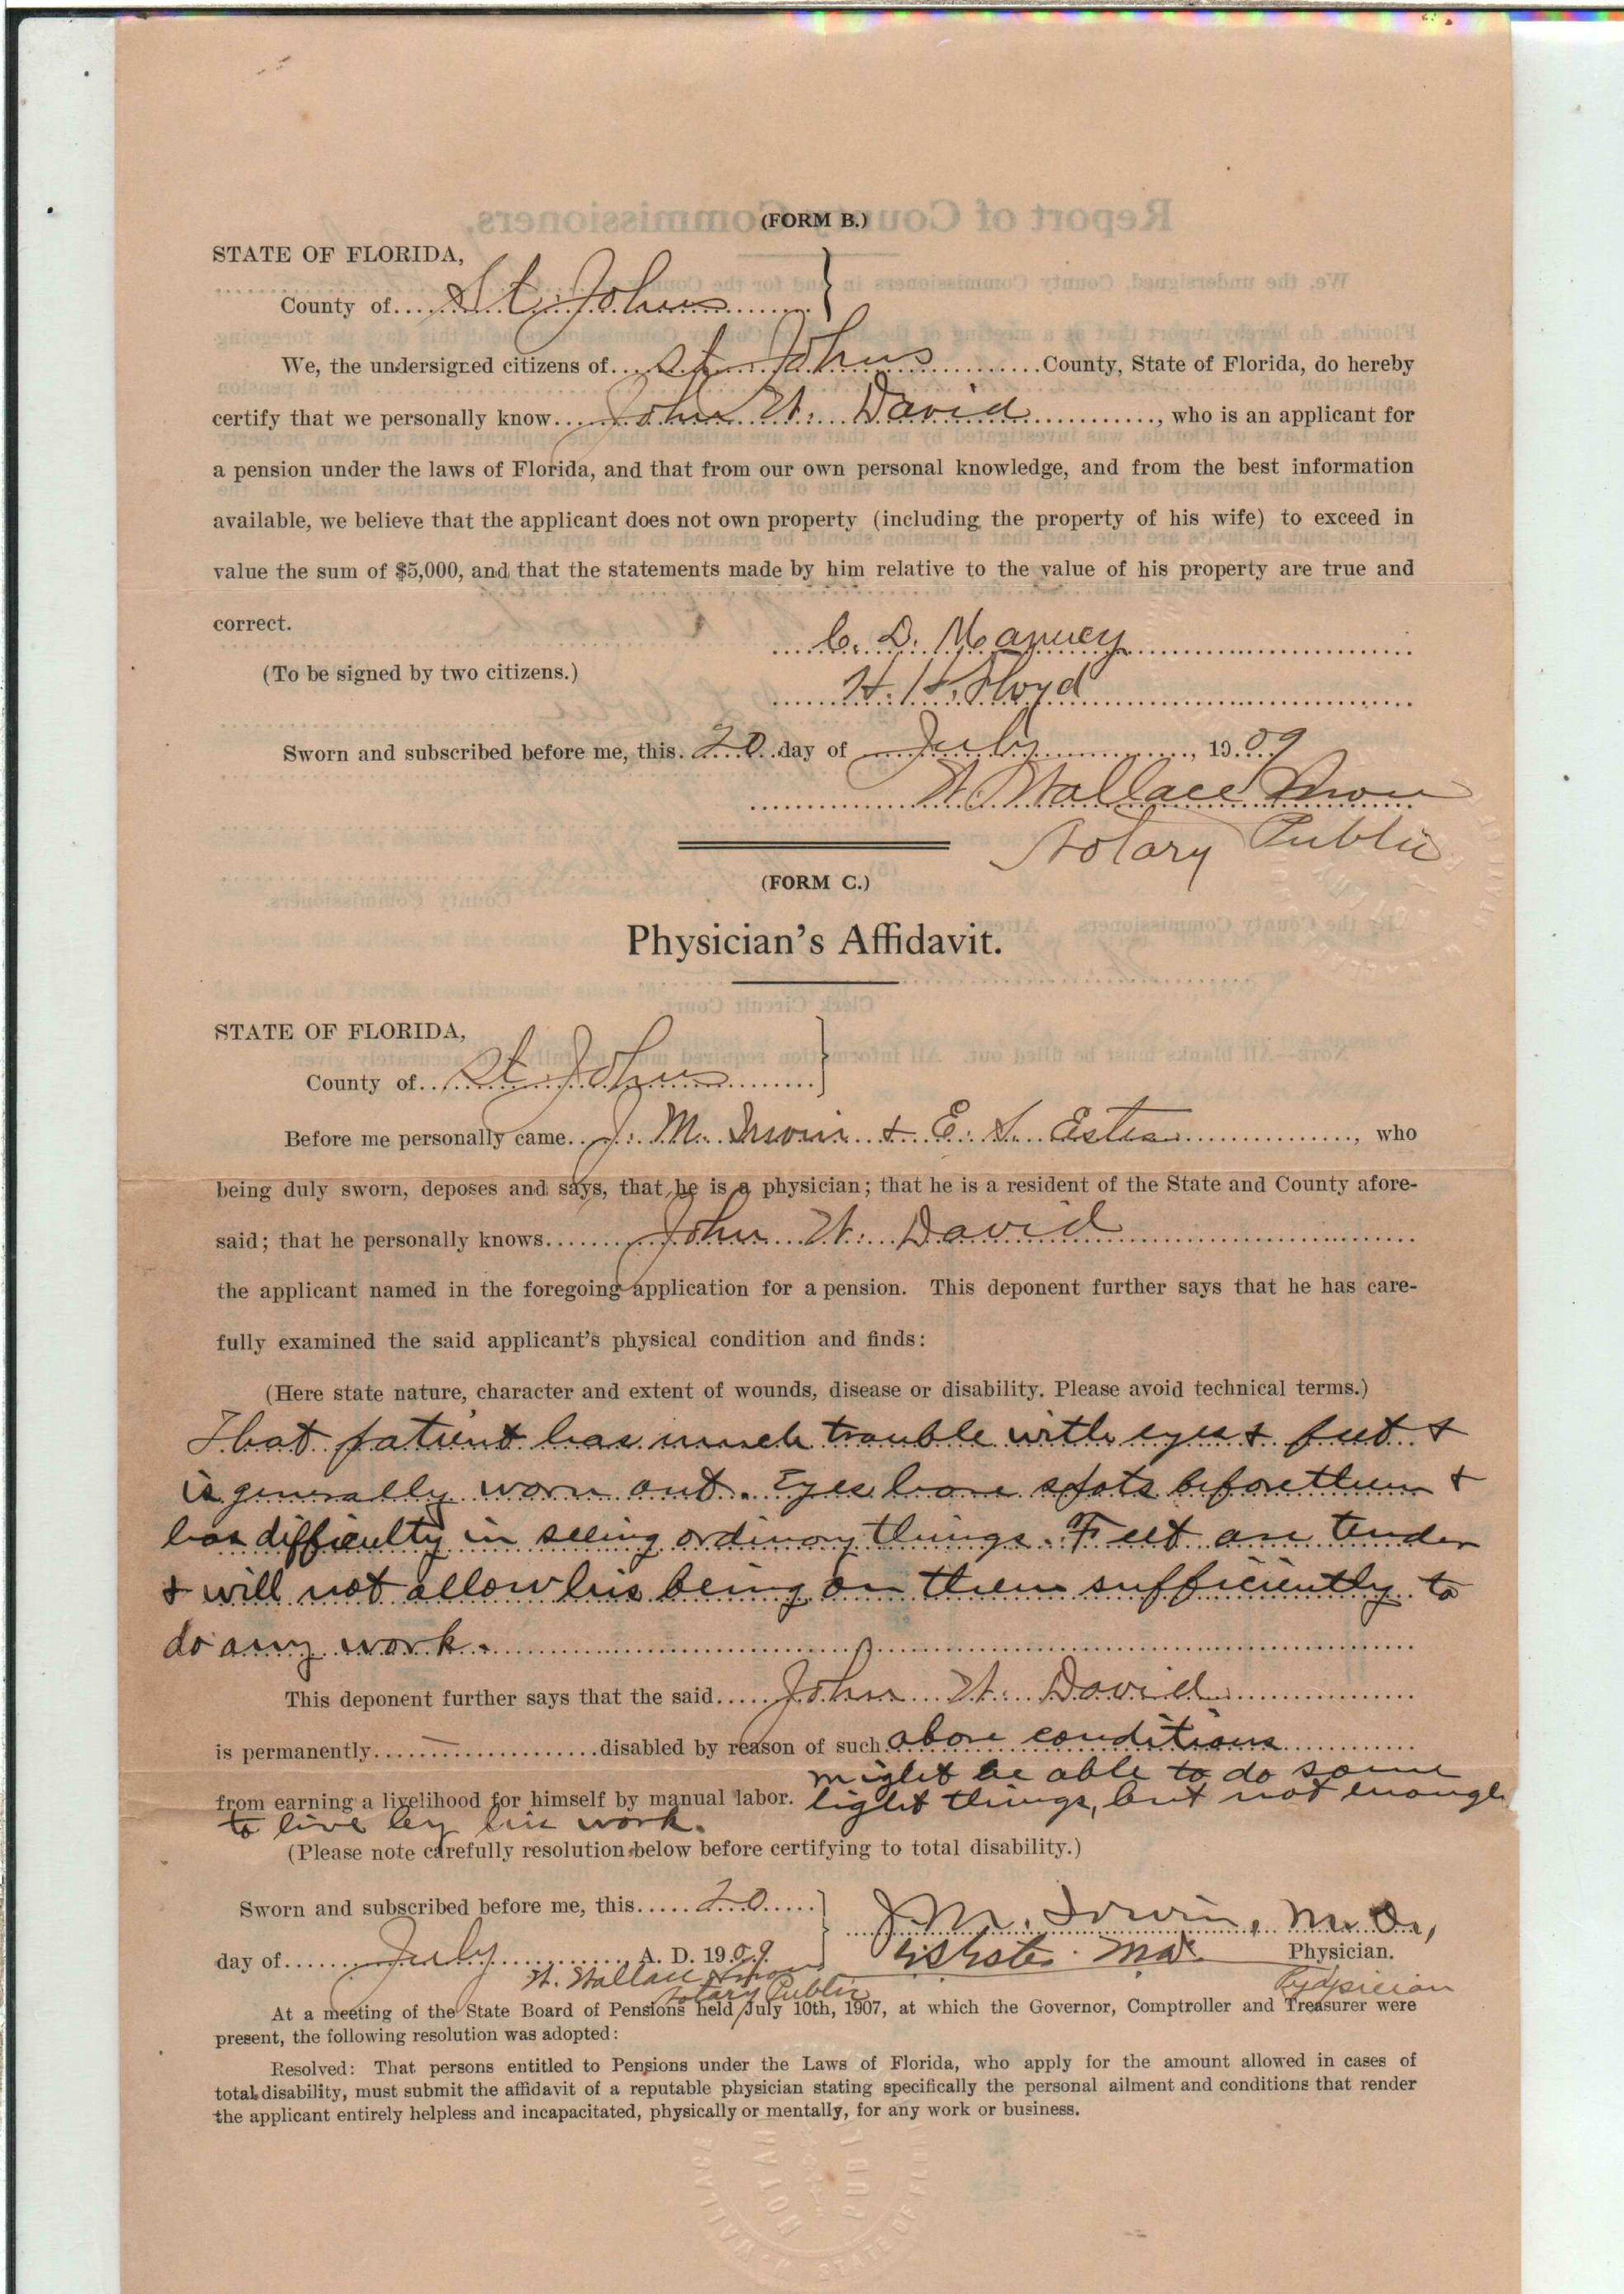 (FORM B.)
STATE OF FLORIDA,
County of St. Johns }
We, the undersigned citizens of St. Johns County, State of Florida, do hereby
certify that we personally know John W. David, who is an applicant for
a pension under the laws of Florida, and that from our own personal knowledge, and from the best information
available, we believe that the applicant does not own property (including the property of his wife) to exceed in
value the sum of $5,000, and that the statements made by him relative to the value of his property are true and
correct.
C. D. Manucy
(To be signed by two citizens.)
H. H. Floyd
Sworn and subscribed before me, this 20 day of July, 1909
W. Wallace
Notary Public
(FORM C.)
Physician's Affidavit.
STATE OF FLORIDA,
County of St. Johns }
Before me personally came J. M. Irwin & E. S. Estes, who
being duly sworn, deposes and says, that he is a physician; that he is a resident of the State and County afore-
said; that he personally knows John W. David
the applicant named in the foregoing application for a pension. This deponent further says that he has care-
fully examined the said applicant's physical condition and finds:
(Here state nature, character and extent of wounds, disease or disability. Please avoid technical terms.)
That patient has much trouble with eyes & feet &
is generally worn out. Eyes have spots before them &
has difficulty in seeing ordinary things. Feet are tender
& will not allow his being on them sufficiently to
do any work.
This deponent further says that the said John W. David
is permanently disabled by reason of such above conditions
might be able to do some
from earning a livelihood for himself by manual labor. light things, but not enough
to live by his work.
(Please note carefully resolution below before certifying to total disability.)
Sworn and subscribed before me, this 20 } J. M. Irwin, M. D.,
day of July, A. D. 1909. Estes Physician.
W. Wallace
Notary Public
Physician
At a meeting of the State Board of Pensions held July 10th, 1907, at which the Governor, Comptroller and Treasurer were
present, the following resolution was adopted:
Resolved: That persons entitled to Pensions under the Laws of Florida, who apply for the amount allowed in cases of
total disability, must submit the affidavit of a reputable physician stating specifically the personal ailment and conditions that render
the applicant entirely helpless and incapacitated, physically or mentally, for any work or business.